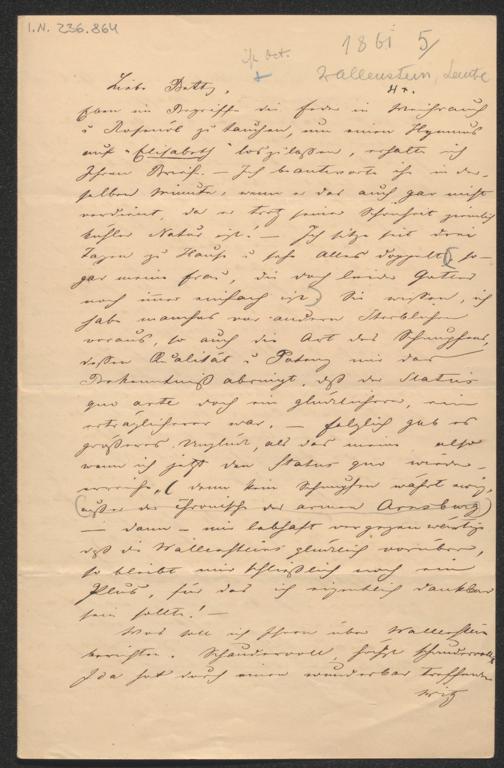 I.N. 236.864
1861 5/
Wallenstein, Leute
Liebe Betty,
Eben im Begriffe die Feder in Weihrauch
u Rosenöl zu tauchen, um einen Hymnus
auf "Elisabeth" loszulassen, erhalte ich
Ihren Brief. – Ich beantworte ihn in der-
selben Minute, wenn er das auch gar nicht
verdient, da er trotz seiner Schönheit ziemlich
kühler Natur ist! – Ich sitze seit drei
Tagen zu Hause u sehe Alles doppelt (so-
gar meine Frau, die doch leider Gottes
noch immer einfach ist) Sie wissen, ich
habe manches vor andern Sterblichen
voraus, so auch die Art des Schnupfens,
dessen Qualität u Potenz mir das
Bekenntniß abringt, daß der Status
quo ante doch ein glücklicherer, ein
erträglicherer war. – folglich gab es
größeres Unglück, als das meine also
wenn ich jetzt den Status quo wieder-
erreiche, (denn kein Schnupfen währt ewig,
außer der chronische der armen Arnsburg)
– dann – mir lebhaft vergegenwärtige
daß die Wallensteins glücklich vorüber,
so bleibt mir schließlich noch ein
Plus, für das ich eigentlich dankbar
sein sollte! –
Was soll ich Ihnen über Wallenstein
berichten. Schaudervoll, höchst schaudervoll
Ida hat durch einen wunderbar treffenden
Witz